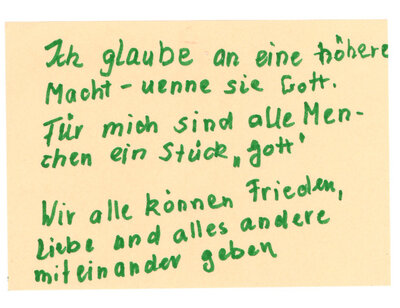 Ich glaube an eine höhere
Macht - nenne sie Gott.
Für mich sind alle Men-
schen ein Stück „gott"
Wir alle können Frieden,
Liebe und alles andere
miteinander geben